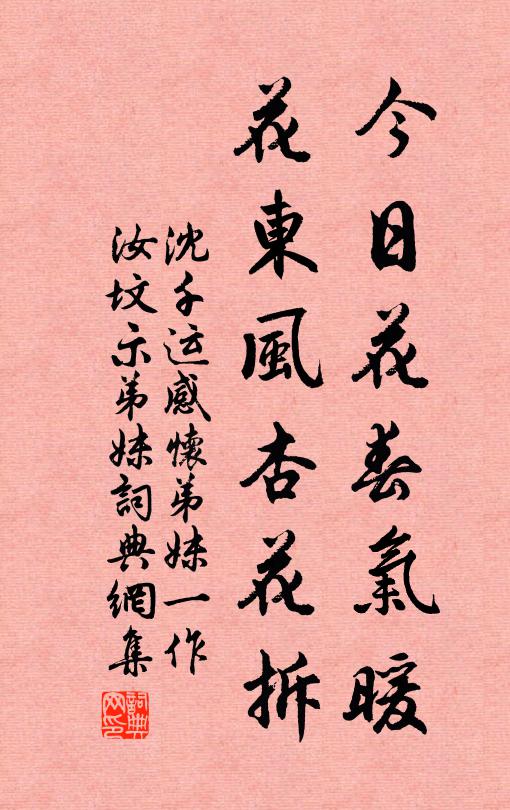 今日花春氣暖
花東風杏花拆
沈千运感懷弟妹一作
汝坟示弟妹詞典網集
詞典网印